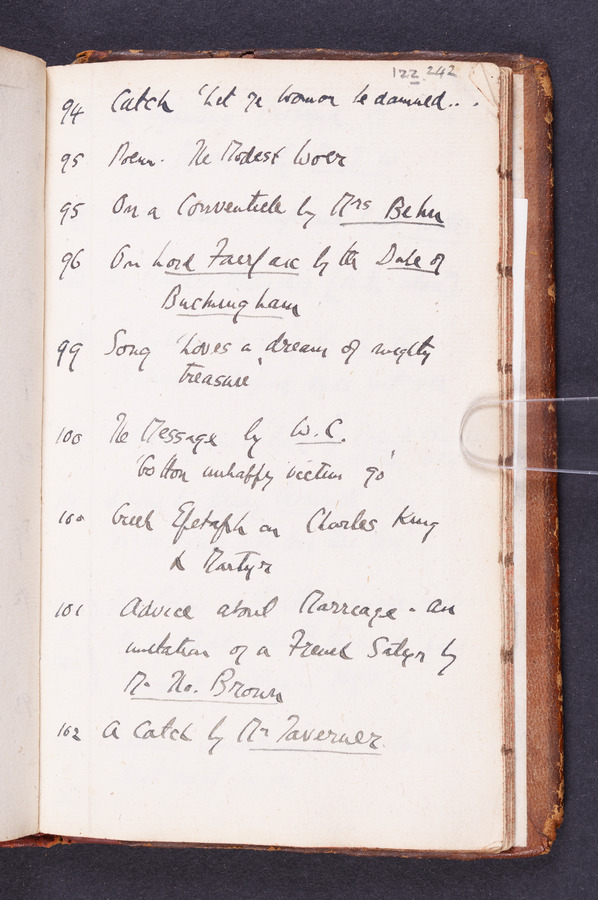 122 242
94 Catch 'Let ye woman be damned...
95 Poem. The Modest Woer
95 On a Conventicle by Mrs Behn
96 On Lord Fairfax by the Duke of
Buckingham
99 Song 'Loves a dream of mighty
treasure'
100 The Message by W. C.
'Go thou unhappy victim go'
100 Greek Epetaph on Charles King
& Martyr
101 Advice about Marreage - an
imitation of a French Satyr by
Mr Tho. Brown
102 A Catch by Mr Taverner.